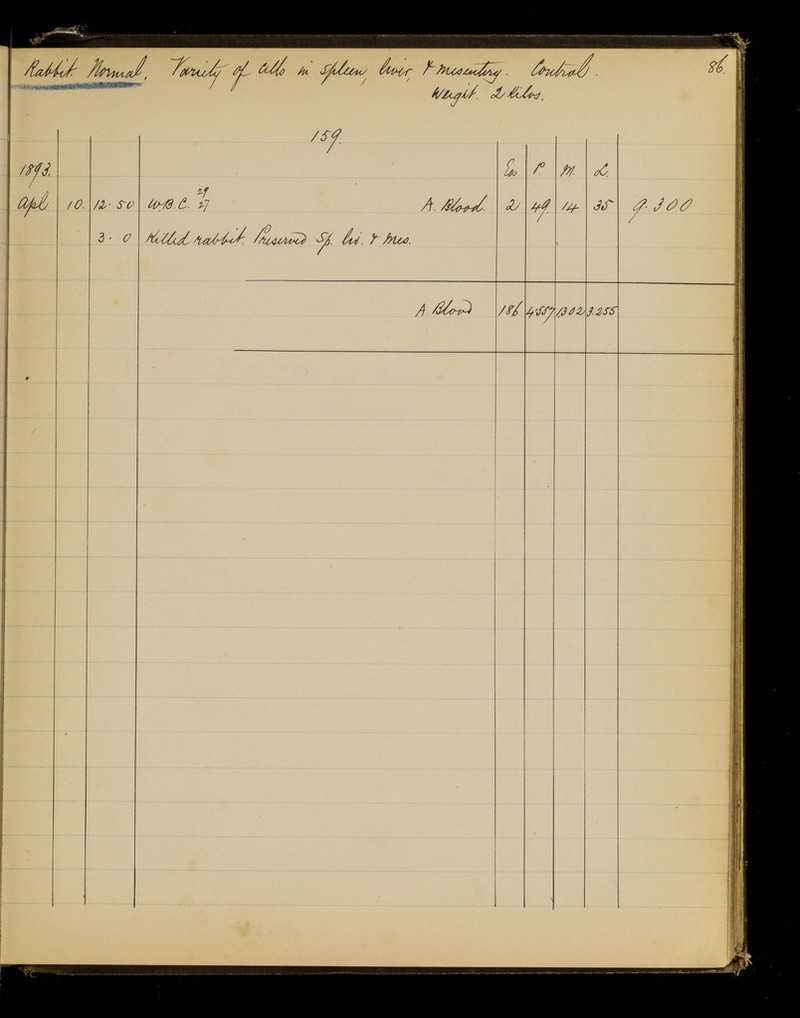 Rabbit Normal. Variety of Cells in Spleen, liver, & mesentery. Control. 86.
Weight. 2 Kilos.
159.
1893. Eos P. M. L.
29
Apl 10. 12-50 W.B.C. 27 A. Blood. 2 49. 14 35 9.300
3-0 Killed rabbit. Preserved Sp. liv. & Mes.
A Blood 186 4557 1302 3.255